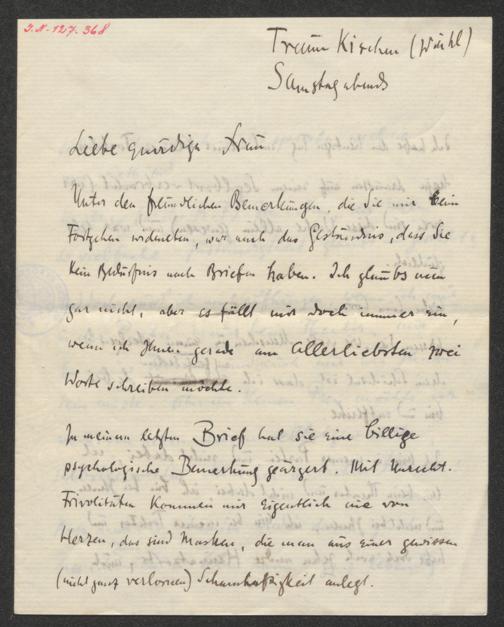 J.N. 127.368
Traunkirchen (Wirthl)
Samstag abends
Liebe gnädige Frau
Unter den freundlichen Bemerkungen, die Sie mir beim
Fortgehen widmeten, war auch das Geständnis, dass Sie
kein Bedürfnis nach Briefen haben. Ich glaubs nun
gar nicht, aber es fällt mir doch immer ein,
wenn ich Ihnen gerade am allerliebsten zwei
Worte schreiben möchte.
In meinem letzten Brief hat Sie eine billige
psychologische Bemerkung geärgert. Mit Unrecht.
Frivolitäten kommen mir eigentlich nie von
Herzen, das sind Masken, die man aus einer gewissen
(nicht ganz verlornen) Schamhaftigkeit anlegt.